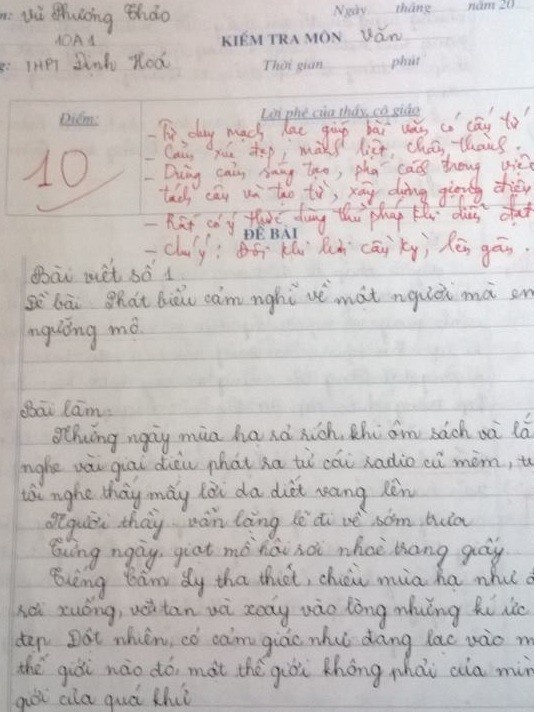 n: Vũ Phương Thảo
Ngày tháng năm 20...
10A1
KIỂM TRA MÔN Văn
g: THPT Định Hoá
Thời gian phút
Điểm:
Lời phê của thầy, cô giáo
10
- Tư duy mạch lạc giúp bài văn có cấu tứ
- Cảm xúc đẹp, mãnh liệt, chân thành.
- Dùng câu sáng tạo, phá cách trong việc
tách câu và tạo từ, xây dựng giọng điệu
- Rất có ý thức dùng thủ pháp khi diễn đạt
ĐỀ BÀI
- Chú ý: Đôi khi hơi cầu kỳ, lên gân.
Bài viết số 1.
Đề bài: Phát biểu cảm nghĩ về một người mà em
ngưỡng mộ.
Bài làm:
Những ngày mùa hạ rả rích, khi ôm sách và lắ
nghe vài giai điệu phát ra từ cái radio cũ mèm, t
tôi nghe thấy mấy lời da diết vang lên
Người thầy vẫn lặng lẽ đi về sớm trưa
Từng ngày, giọt mồ hôi rơi nhoè trang giấy
Tiếng Cẩm Ly tha thiết, chiều mùa hạ như
rơi xuống, vỡ tan và xoáy vào lòng những kí ức
đẹp. Đột nhiên, có cảm giác như đang lạc vào m
thế giới nào đó, một thế giới không phải của mìn
giới của quá khứ